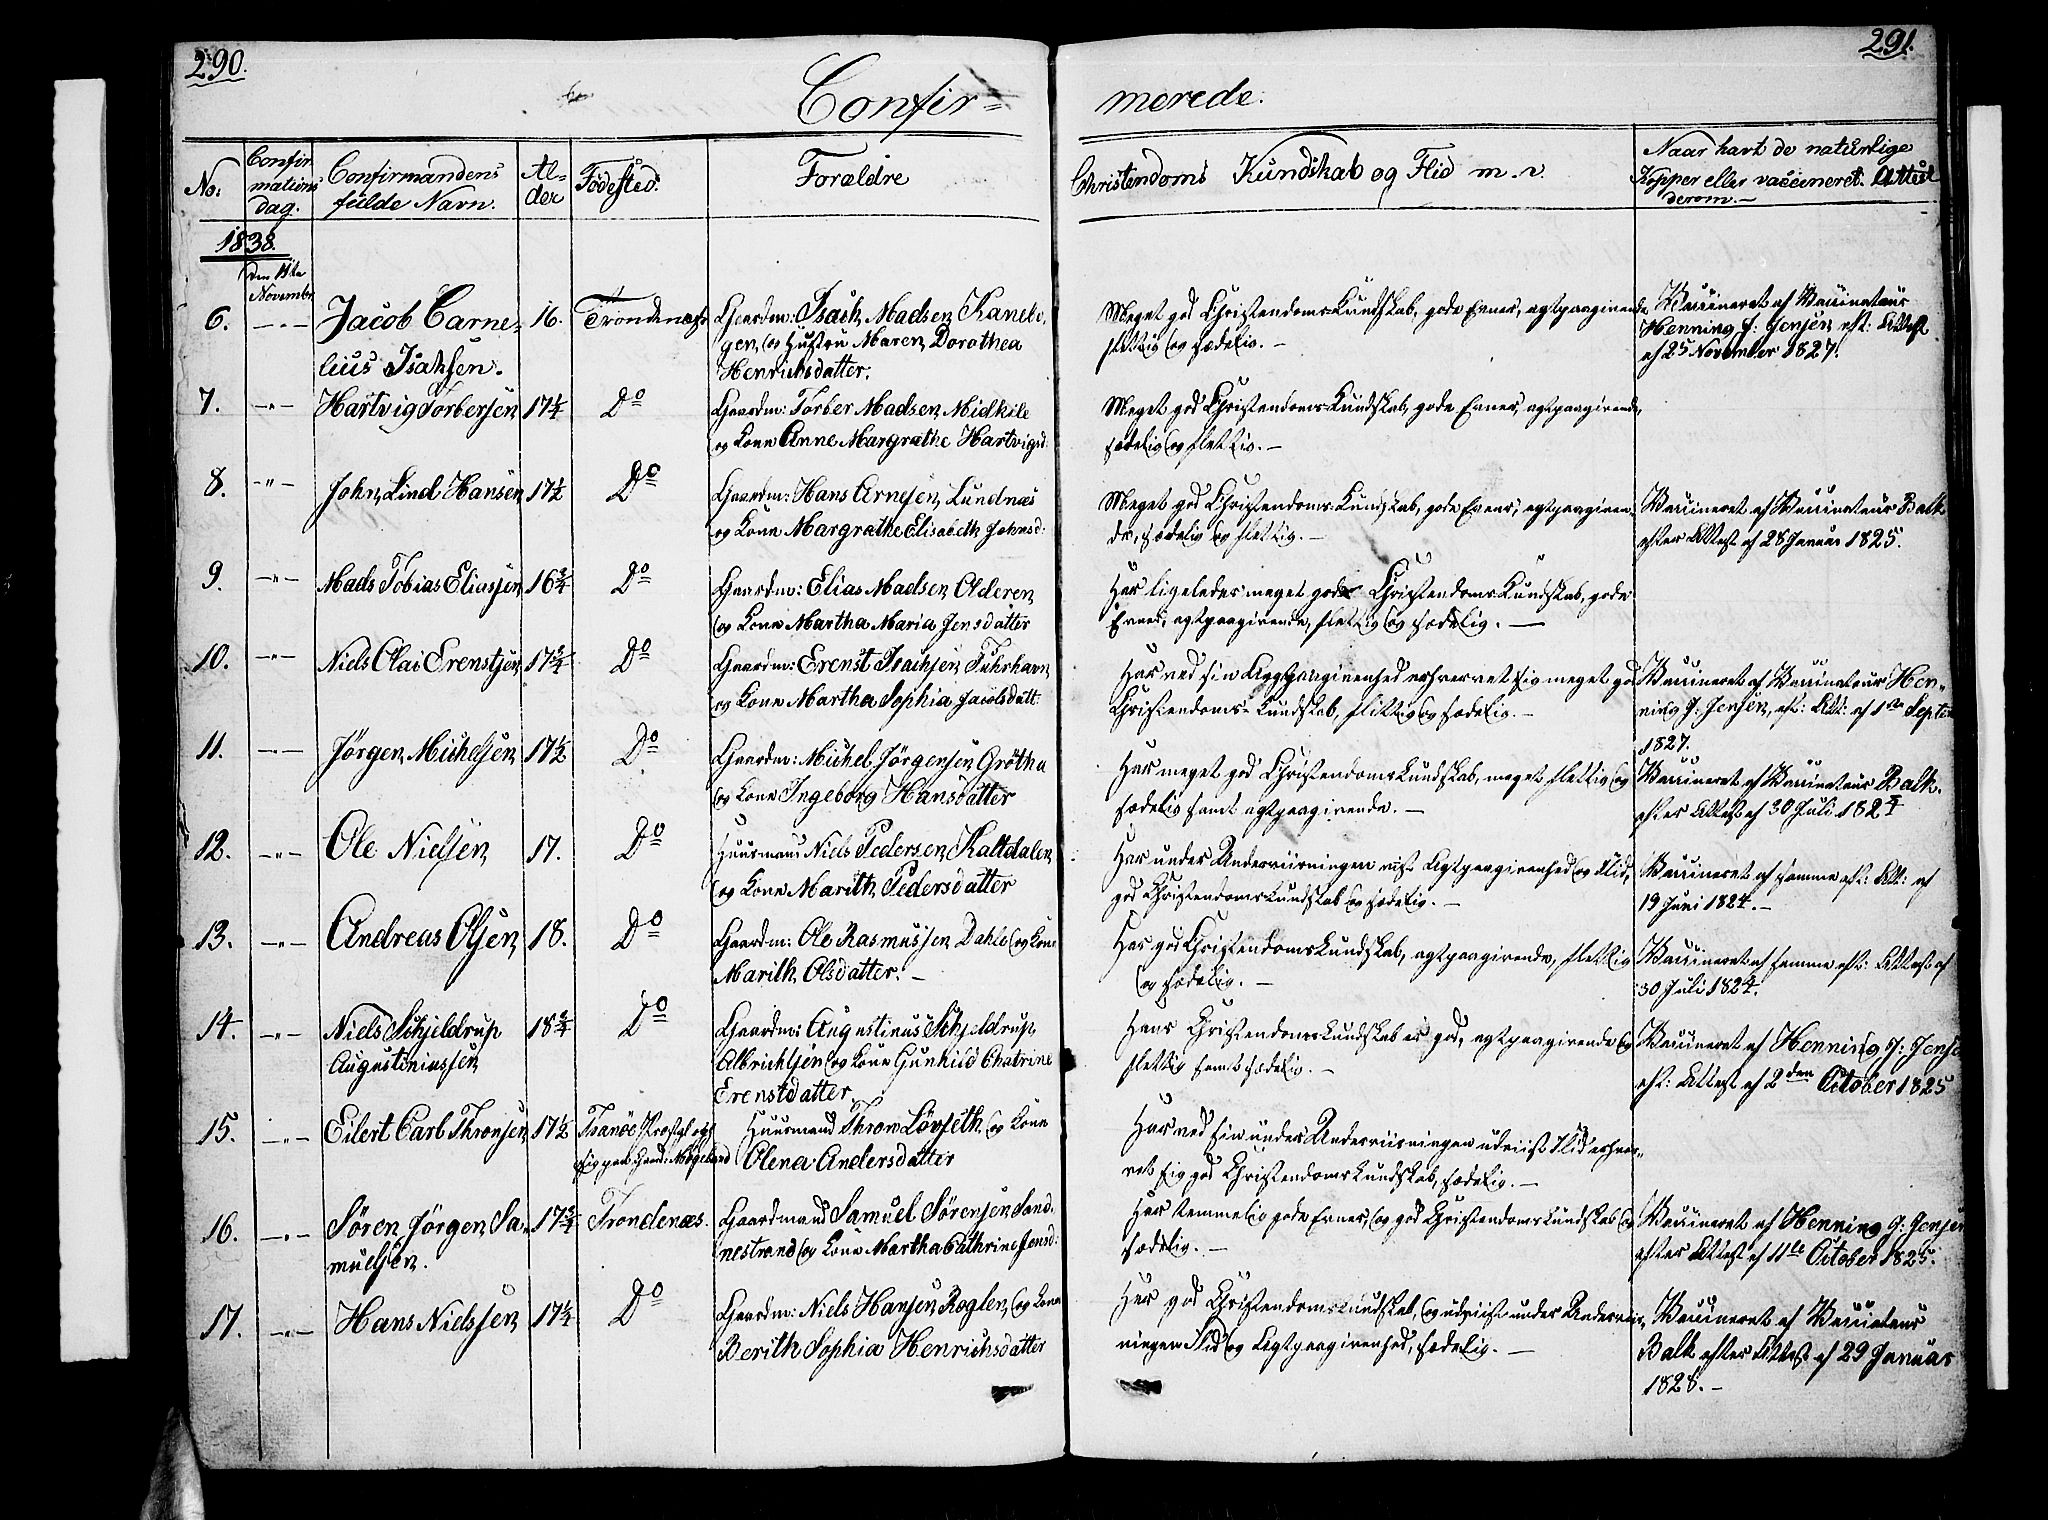 290.
291.
Confir=
merede.
No:
Confirmations dag.
Confirmandens fulde Navn.
Alder
Fødested.
Forældre
Christendoms Kundskab og Flid m. v
Naar havt de naturlige
Kopper eller vaccineret. Attest
derom.-
1838.
den 11te
Novembr
6. -"- Jacob Carne= 16. Trondenæs Gaardm: Isach Madsen Kanebo,
lius Isaksen. gen, og Hustru Maren Dorothea
Henrichsdatter.
Meget god Christendoms-Kundskab, gode Evner, agtpaagivende
flittig og sædelig. -
Vaccineret af Vaccinateur
Henning J: Jensen, eft: Attest
af 25 November 1827.
7. -"- Hartvig Torbersen 17¼ Do Gaardm: Torber Madsen Midkile
og Kone Anne Margrathe Hartvigsd:
Meget god Christendoms-Kundskab, gode Evner, agtpaagivende,
sædelig og flittig. -
8. -"- John Lind Hansen 17½ Do Gaardm: Hans Arnesen, Lundnæs
og Kone Margrathe Elisabeth Johnsd:
Meget god Christendoms-Kundskab, gode Evner, agtpaagiven=
de, sædelig og flittig. -
Vaccineret af Vaccinateur Balk
efter Attest af 28 Januar 1825.
9. -"- Mads Tobias Eliassen 16¾ Do Gaardm: Elias Madsen Olderen
og Kone Martha Maria Jensdatter
Har ligeledes meget gode Christendoms Kundskab, gode
Evner, agtpaagivende, flittig og sædelig. -
10. -"- Niels Olai Erenstsen 17¾ Do Gaardm: Erenst Isachsen, Fuhrhavn
og Kone Martha Sophia Jacobsdatt:
Har ved sin Agtpaagivenhed erhvervet sig meget god
Christendoms-Kundskab, flittig og sædelig. -
Vaccineret af Vaccinateur Hen=
ning J: Jensen, eft: Att: af 1ste Septem
1827.
11. -"- Jørgen Michelsen 17½ Do Gaardm: Michel Jørgensen Grøtha
og Kone Ingeborg Hansdatter
Har meget god Christendoms Kundskab, meget flittig og
sædelig samt agtpaagivende. -
Vaccineret af Vaccinateur Balk.
efter Attest af 30 Juli 1824
12. -"- Ole Nielsen 17. Do Huusmand Niels Pedersen Kaltdalen
og Kone Marith Pedersdatter
Har under Underviisningen viist Agtpaagivenhed og Flid,
god Christendoms Kundskab og sædelig. -
Vaccineret af samme eft: Att: af
19 Juni 1824. -
13. -"- Andreas Olsen 18. Do Gaardm: Ole Rasmussen Dahle og Kone
Marith Olsdatter. -
Har god Christendoms Kundskab, agtpaagivende, flittig
og sædelig. -
Vaccineret af samme eft: Attest af
30 Juli 1824.
14. -"- Niels Schjeldrup 18¾ Do Gaardm: Augustinus Schjeldrup
Augustiniussen Albrichtsen og Kone Gunhild Chatrine
Erenstdatter
Hans Christendoms Kundskab er god, agtpaagivende og
flittig samt sædelig. -
Vaccineret af Henning J: Jensen
eft: Attest af 2den October 1825
15. -"- Eilert Carl Thronsen 17½ Tranöe Huusmand Thron Løvseth og Kone
Olena Andersdatter
Har ved sin under Underviisningen udviist Flid erhver=
vet sig god Christendoms Kundskab, sædelig. -
16. -"- Søren Jørgen Sa= 17¾ Trondenæs. Gaardmand Samuel Sørensen Sand,
muelsen. nestrand og Kone Martha Cathrine Jensd:
Har temmelig gode Evner, og god Christendoms Kundskab og
sædelig. -
Vaccineret af Henning J: Jensen
efter Attest af 11te October 1825.
17. -"- Hans Nielssen 17¼ Do Gaardm: Niels Hansen Røglen, og Kone
Berith Sophia Henrichsdatter
Har god Christendoms Kundskab, og udviist under Underviis,
ningen Flid og Agtpaagivenhed, sædelig. -
Vaccineret af Vaccinateur
Balk efter Attest af 29 Januar
1828. -